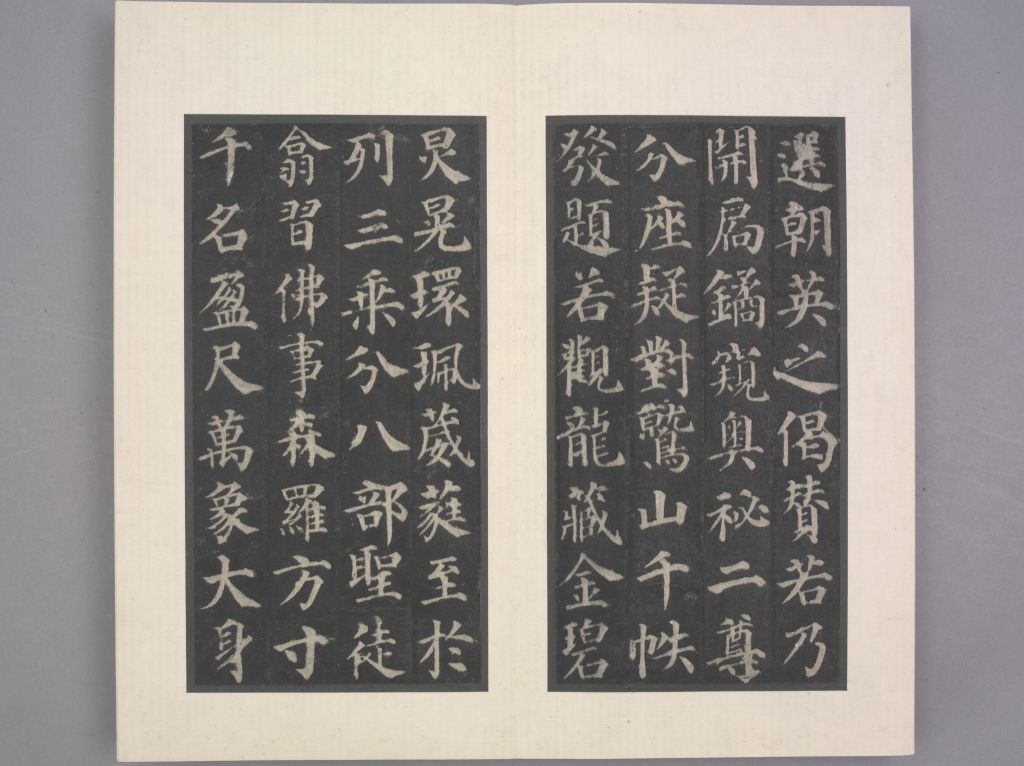 選朝英之偈賛若乃
開扃鐍窺奥祕二尊
分座疑對鷲山千帙
發題若觀龍藏金碧
炅晃環珮葳蕤至於
列三乘分八部聖徒
翕習佛事森羅方寸
千名盈尺萬象大身